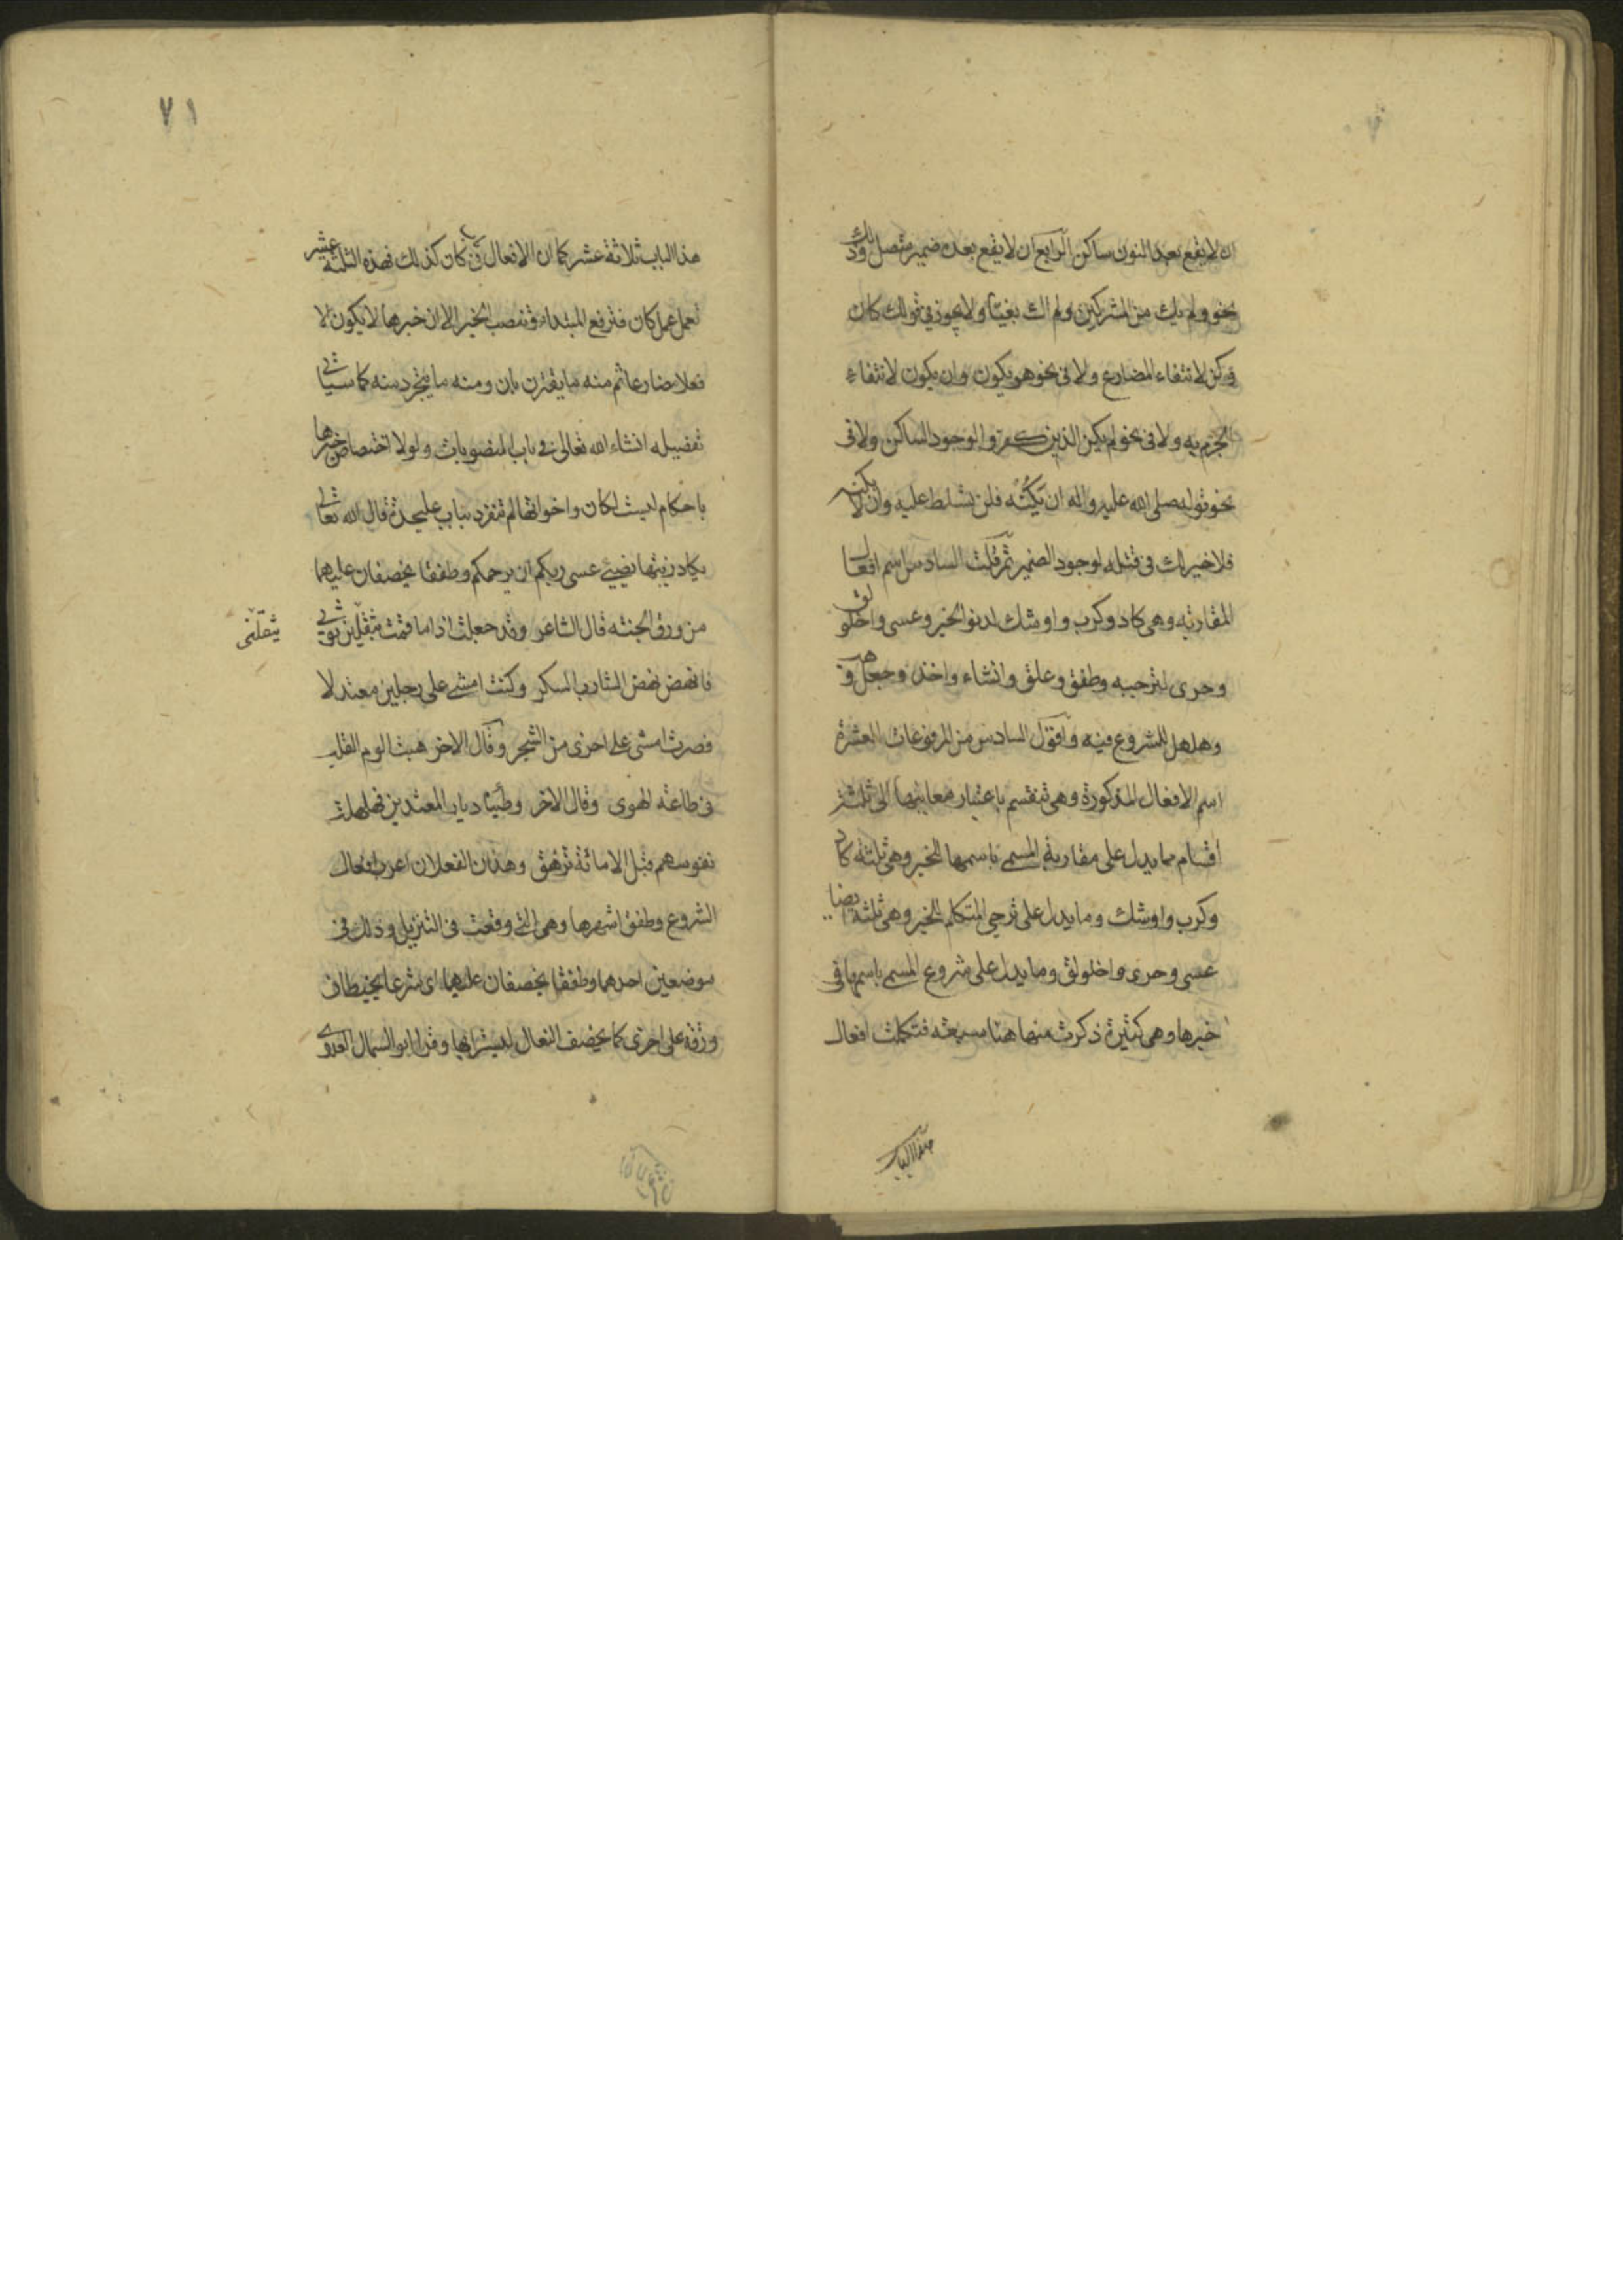 ان لا يقع بعد النون ساكن الرابع ان لا يقع بعده ضمير متصل وذلك
نحو ولم يك من المشركين ولم اك بغيا ولا يجوز في قولك كان
وكن لانتفاء المضارع ولا فى نحو هو يكون وان يكون لانتفاء
الجزم به ولا فى نحو لم يكن الذين كفروا لوجود الساكن ولا فى
نحو قوله صلى الله عليه واله ان يكنه فلن تسلط عليه وان لا يكنه
فلا خير لك فى قتله لوجود الضمير ثم قلت السادس اسم افعال
المقاربه وهى كاد وكرب واوشك لدنو الخبر وعسى واخلولق
وحرى لترجيه وطفق وعلق وانشاء واخذ وجعل وهب
وهلهل للشروع فيه واقول السادس من المرفوعات العشرة
اسم الافعال المذكورة وهى تنقسم باعتبار معانيها الى ثلثة
اقسام ما يدل على مقاربة المسمى باسمها للخبر وهى ثلثة كاد
وكرب واوشك وما يدل على ترجى المتكلم للخبر وهى ثلثة ايضا
عسى وحرى واخلولق وما يدل على شروع المسمى باسمها فى
خبرها وهى كثيرة ذكرت منها هنا سبعة فتكملت افعال
هذا الباب
٧١
هذا الباب ثلاثة عشر كما ان الافعال فى كان كذلك فهذه الثلثة عشر
تعمل عمل كان فترفع المبتداء وتنصب الخبر الا ان خبرها لا يكون الا
فعلا مضارعا ثم منه ما يقترن بان ومنه ما يتجرد منه كما سياتى
تفصيله انشاء الله تعالى فى باب المنصوبات ولولا اختصاص خبرها
باحكام ليست لكان واخواتها لم تنفرد بباب عليحدة قال الله تعالى
يكاد زيتها يضيئ عسى ربكم ان يرحمكم وطفقا يخصفان عليهما
من ورق الجنة قال الشاعر وقد جعلت اذا ما قمت يثقلنى ثوبى
يثقلنى
فانهض نهض الشارب السكر وكنت امشى على رجلين معتدلا
فصرت امشى على اخرى من الشجر وقال الاخر هببت الوم القلب
فى طاعة الهوى وقال الاخر وطئنا ديار المعتدين فهلهلت
نفوسهم قبل الاماتة تزهق وهذان الفعلان اغرب افعال
الشروع وطفق اشهرها وهى التى وقعت فى التنزيل وذلك فى
موضعين احدهما وطفقا يخصفان عليهما اى شرعا يخيطان
ورقة على اخرى كما يخصف النعال ليستترا بها وقرا ابو السمال العدوى